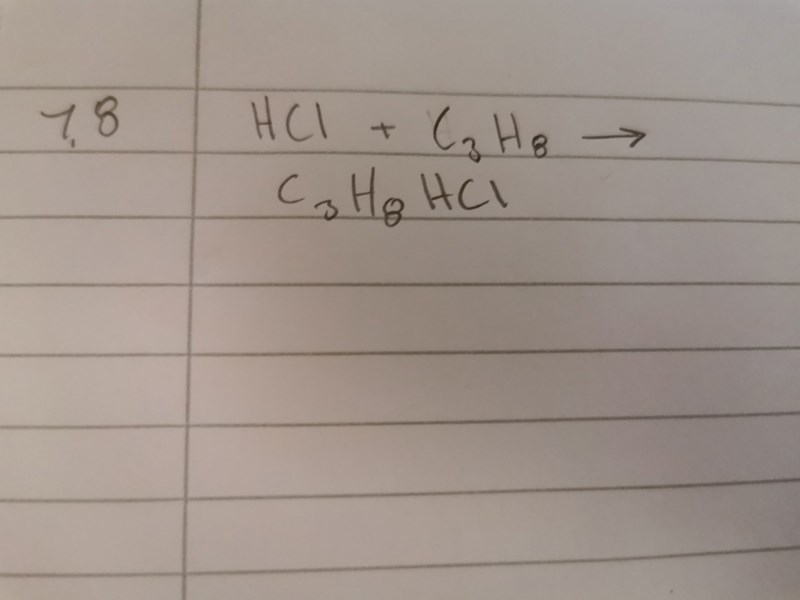 1.8 HCl + C₃H₈ →
C₃H₈HCl